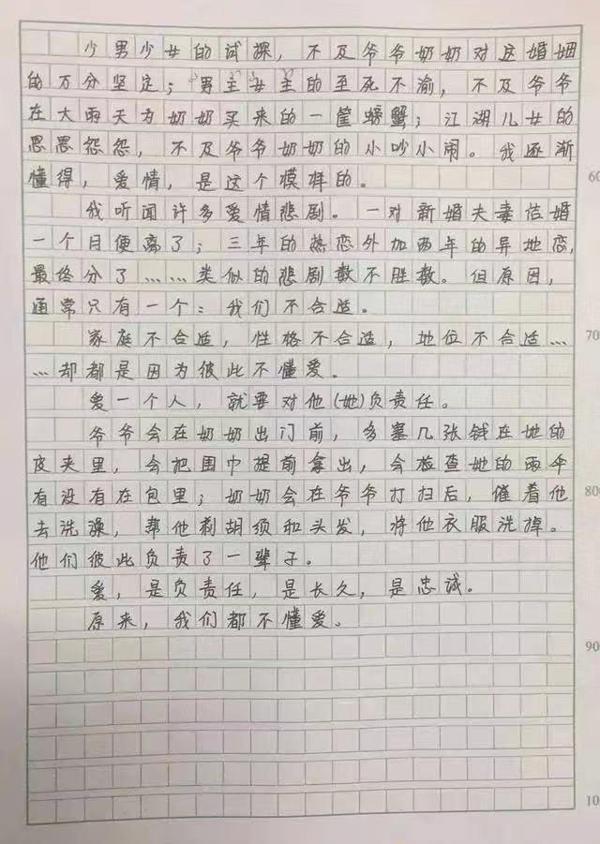 少男少女的试探，不及爷爷奶奶对这婚姻
的万分坚定；男主女主的至死不渝，不及爷爷
在大雨天为奶奶买来的一筐螃蟹；江湖儿女的
恩恩怨怨，不及爷爷奶奶的小吵小闹。我逐渐
懂得，爱情，是这个模样的。
60
我听闻许多爱情悲剧。一对新婚夫妻结婚
一个月便离了；三年的热恋外加两年的异地恋，
最终分了……类似的悲剧数不胜数。但原因，
通常只有一个：我们不合适。
家庭不合适，性格不合适，地位不合适…
70
…却都是因为彼此不懂爱。
爱一个人，就要对他(她)负责任。
爷爷会在奶奶出门前，多塞几张钱在她的
皮夹里，会把围巾提前拿出，会检查她的雨伞
有没有在包里；奶奶会在爷爷打扫后，催着他
800
去洗澡，帮他剃胡须和头发，将他衣服洗掉。
他们彼此负责了一辈子。
爱，是负责任，是长久，是忠诚。
原来，我们都不懂爱。
90
10